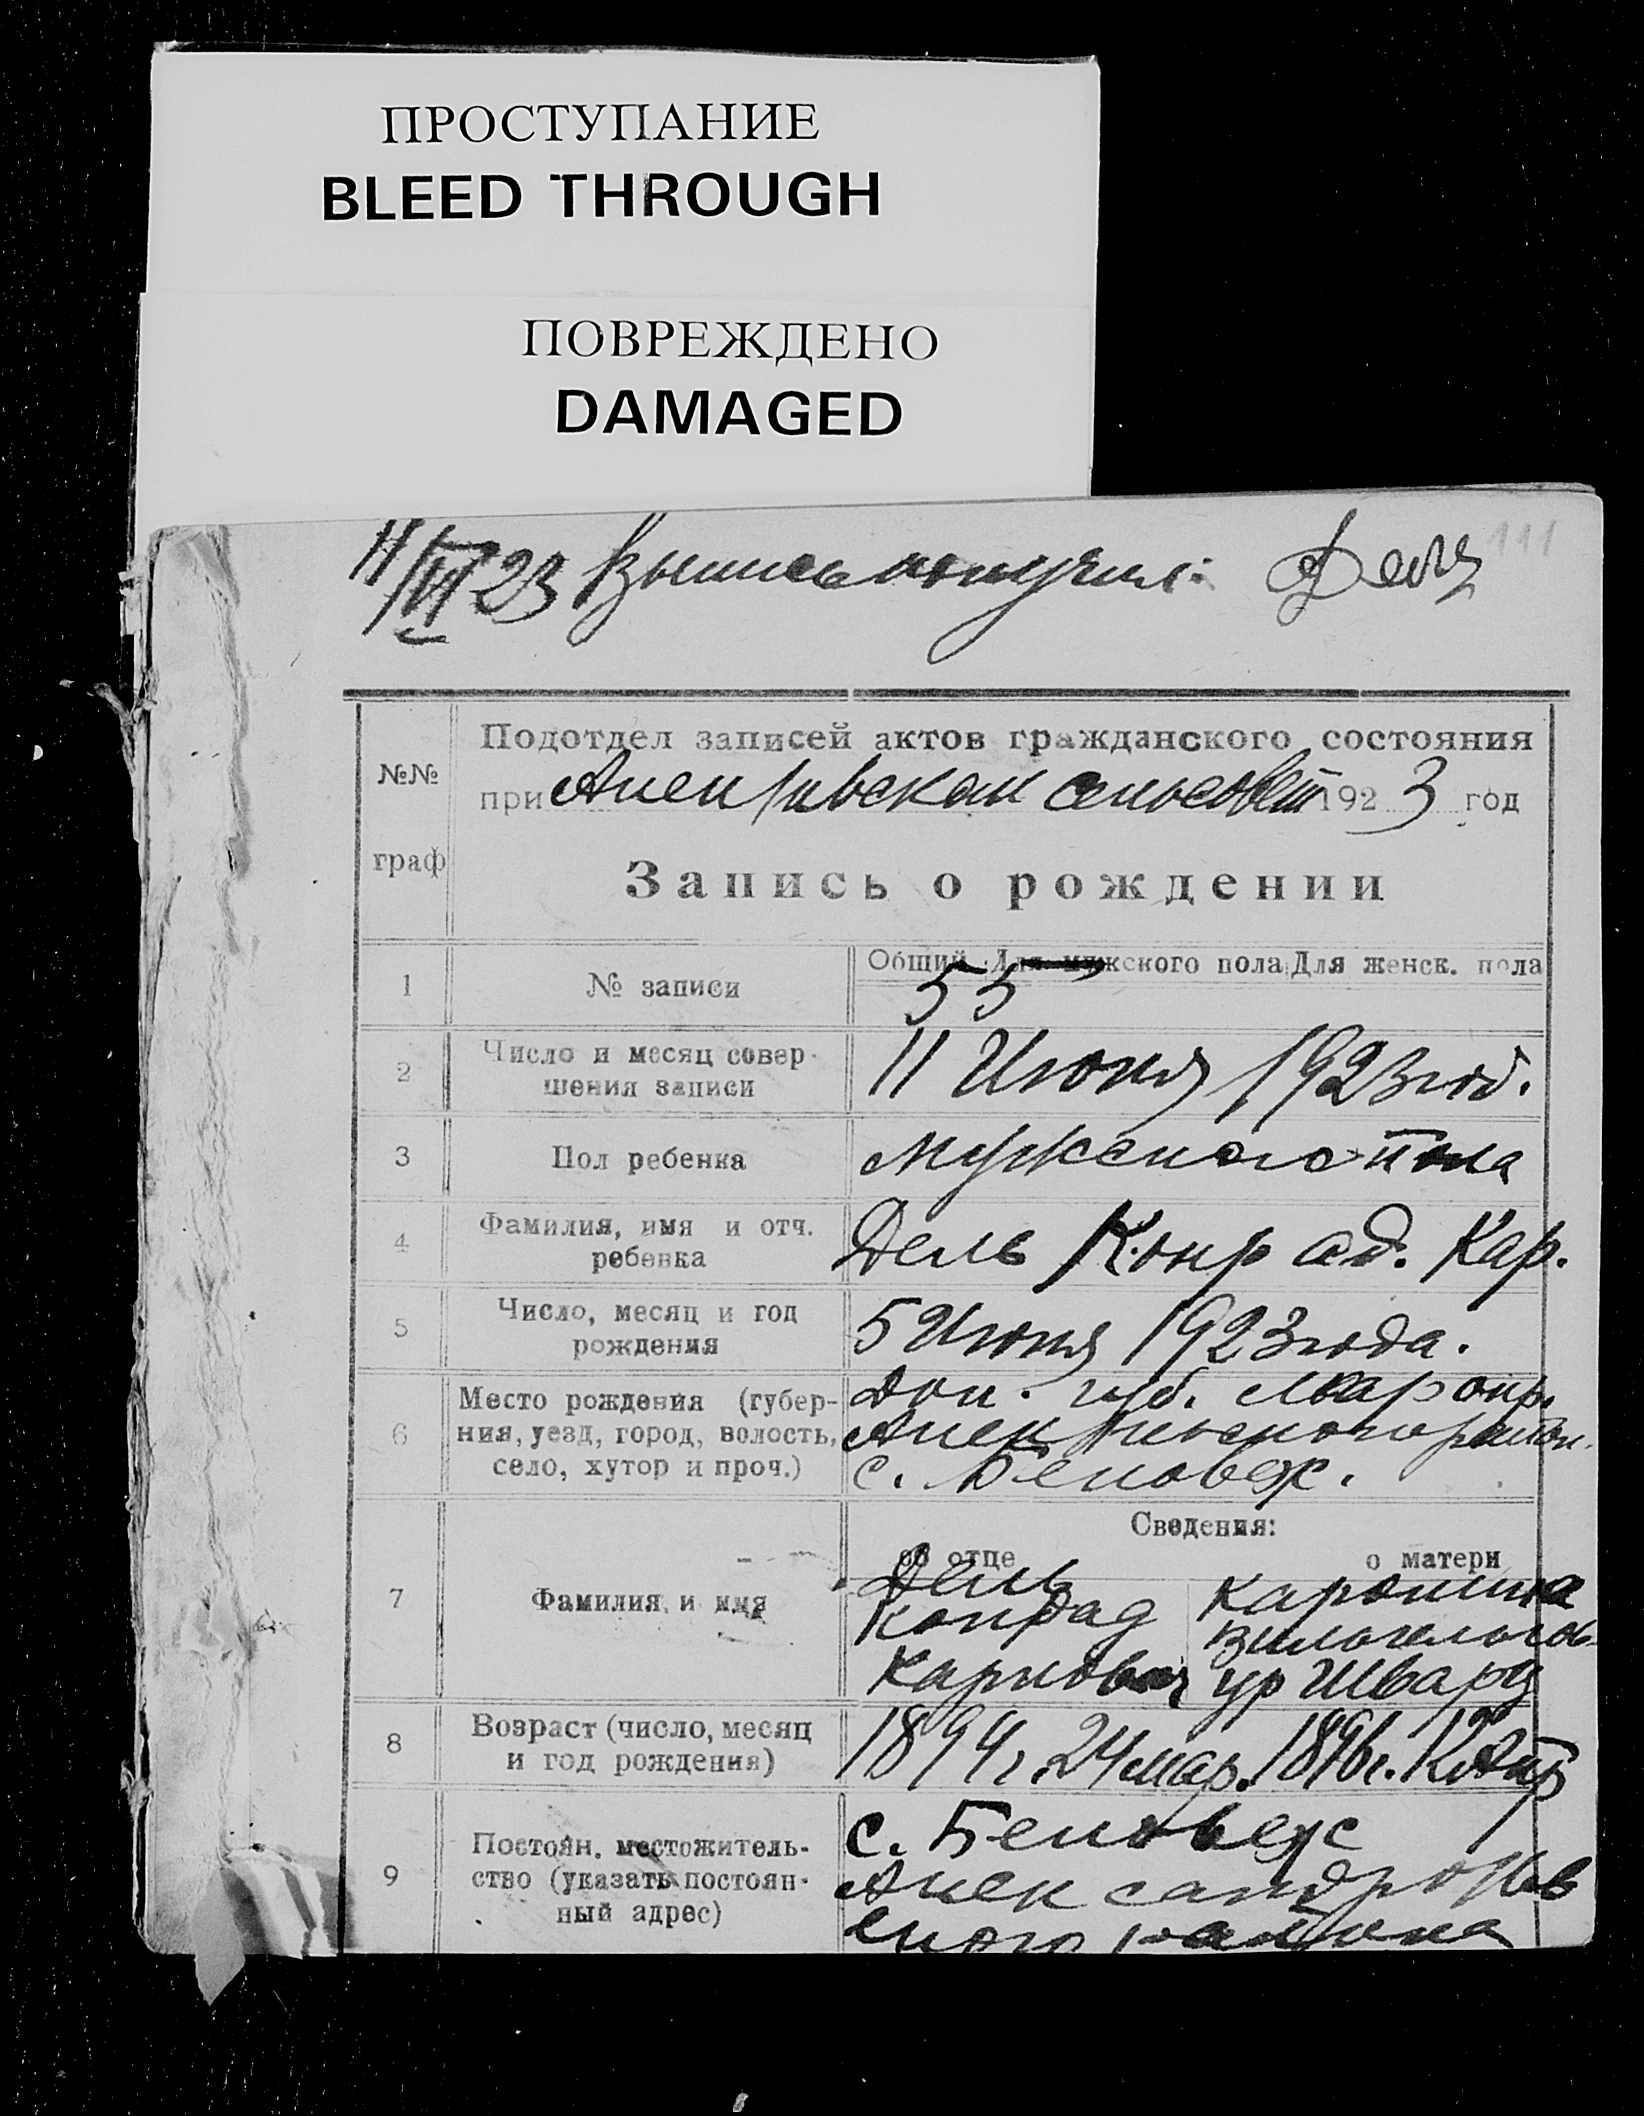 ПРОСТУПАНИЕ
BLEED THROUGH
ПОВРЕЖДЕНО
DAMAGED
11/VI 23 Выпись получил:
111
№№
граф
Подотдел записей актов гражданского состояния
при сельсовет 1923 год
Запись о рождении
Общий Для мужского пола Для женск. пола
1 № записи 55
2 Число и месяц совер-
шения записи
11 Июня 1923 год.
3 Пол ребенка мужского пола
4 Фамилия, имя и отч.
ребенка
Дель Конрад. Кар.
5 Число, месяц и год
рождения
5 Июня 1923 года.
6 Место рождения (губер-
ния, уезд, город, волость,
село, хутор и проч.)
Дон. губ. Мар окр.
с. Беловеж.
Сведения:
об отце о матери
7 Фамилия и имя
Дель
Конрад
Карлович
Каролина
ур Шварц
8 Возраст (число, месяц
и год рождения)
1894 г. 24 мар. 1896 г.
9 Постоян. местожитель-
ство (указать постоян-
ный адрес)
с. Беловеж
Александров
ского района